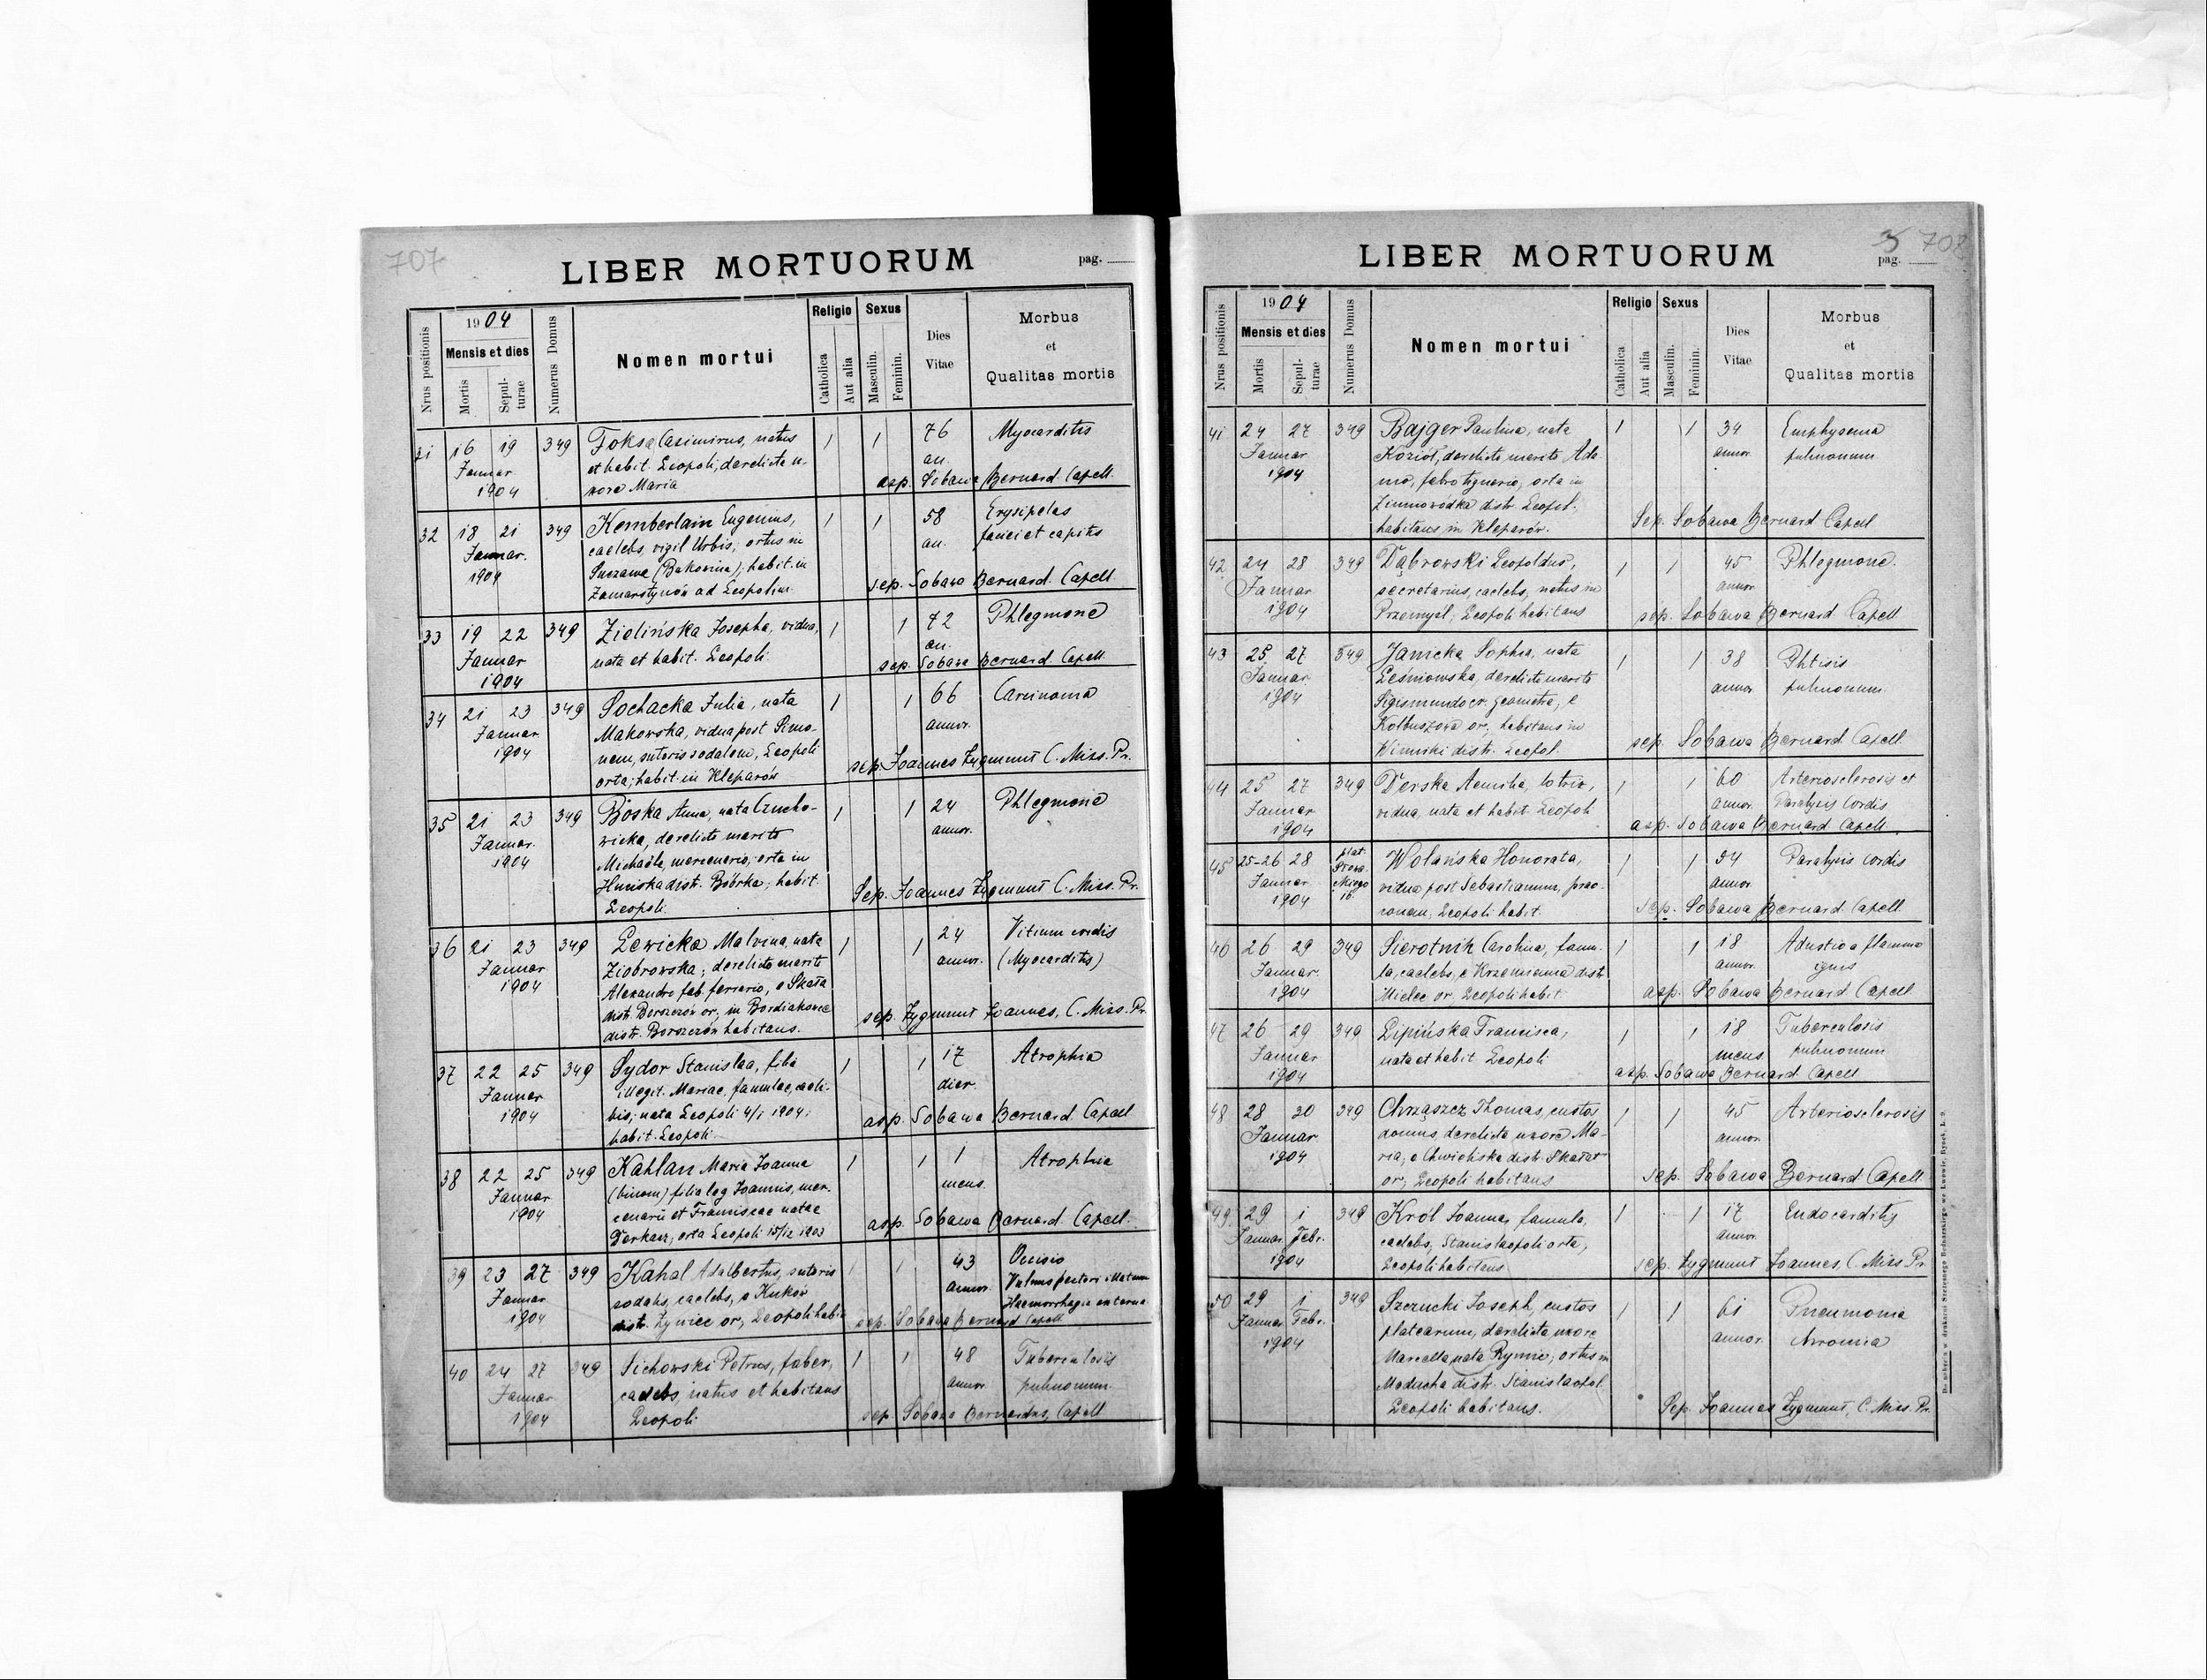 707
LIBER MORTUORUM
pag.
Nrus positionis
1904
Mensis et dies
Mortis
Sepulturae
Numerus Domus
Nomen mortui
Religio
Catholica
Aut alia
Sexus
Masculin.
Feminin.
Dies
Vitae
Morbus
et
Qualitas mortis
31 16 19 349 Foksa Casimirus, natus 1 1 76 Myocarditis
Januar et habit. Leopoli, derelicta u- an.
1904 xore Maria asp. Sobawa Bernard Capell.
32 18 21 349 Kemberlain Eugenius, 1 1 58 Erysipelas
Januar. caelebs, vigil Urbis; ortus in an. faciei et capitis
1904 Suczawa (Bukowina); habit. in
Zamarstynów ad Leopolim. sep. Sobawa Bernard. Capell
33 19 22 349 Zielińska Josepha, vidua, 1 1 72 Phlegmone
Januar nata et habit. Leopoli an.
1904 sep. Sobawa Bernard. Capell
34 21 23 349 Sochacka Julia, nata 1 1 66 Carcinoma
Januar Makowska, vidua post Simo- annor.
1904 nem, sutoris sodalem, Leopoli
orta; habit. in Kleparów sep. Joannes Zygmunt C. Miss. Pr.
35 21 23 349 Boska Anna, nata Czucho- 1 1 24 Phlegmone
Januar. wicka, derelicto marito annor.
1904 Michaële, mercenario, orta in
Huiska distr. Bóbrka; habit.
Leopoli. Sep. Joannes Zygmunt C. Miss. Pr.
36 21 23 349 Lewicka Malvina, nata 1 1 24 Vitium cordis
Januar Ziobrowska; derelicto marito annor. (Myocarditis)
1904 Alexandro fab. ferrario, e Skała
distr. Borszczów or., in Bordiakowce
distr. Borszczów habitans. sep. Zygmunt Joannes, C. Miss. Pr.
37 22 25 349 Sydor Stanislaa, filia 1 1 17 Atrophia
Januar illegit. Mariae, famulae, caeli- dier.
1904 bis; nata Leopoli 4/1 1904;
habit. Leopoli. asp. Sobawa Bernard Capell
38 22 25 349 Kahlan Maria Joanna 1 1 1 Atrophia
Januar (binom) filia leg. Joannis, mer- mens.
1904 cenarii et Franciscae natae
Derkacz, orta Leopoli 15/12 1903 asp. Sobawa Bernard. Capell.
39 23 27 349 Kahal Adalbertus, sutoris 1 1 43 Occisio
Januar sodalis, caelebs, e Kuków annor. Vulnus pectori illatum
1904 distr. Żywiec or., Leopoli habit. Haemorrhagia externa
sep. Sobawa Bernard Capell
40 24 27 349 Sichowski Petrus, faber, 1 1 48 Tuberculosis
Januar caelebs, natus et habitans annor. pulmonum.
1904 Leopoli sep. Sobawa Bernardus, Capell
3 708
LIBER MORTUORUM
pag.
Nrus positionis
1904
Mensis et dies
Mortis
Sepulturae
Numerus Domus
Nomen mortui
Religio
Catholica
Aut alia
Sexus
Masculin.
Feminin.
Dies
Vitae
Morbus
et
Qualitas mortis
41 24 27 349 Bajger Paulina, nata 1 1 34 Emphysema
Januar Kozioł, derelicto marito Ada- annor. pulmonum
1904 mo, fabro lignario, orta in
Zimnowódka distr. Leopol.
habitans in Kleparów. Sep. Sobawa Bernard Capell
42 24 28 349 Dąbrowski Leopoldus, 1 1 45 Phlegmone.
Januar secretarius, caelebs, natus in annor.
1904 Przemyśl; Leopoli habitans sep. Sobawa Bernard Capell
43 25 27 349 Janicka Sophia, nata 1 1 38 Phtisis
Januar Leśniowska, derelicto marito annor pulmonum
1904 Sigismundo cr. geometra, e
Kolbuszowa or., habitans in
Winniki distr. Leopol. sep. Sobawa Bernard Capell
44 25 27 349 Derska Aemilia, lotrix, 1 1 60 Arteriosclerosis et
Januar vidua, nata et habit. Leopoli annor. Paralysis Cordis
1904 asp. Sobawa Bernard Capell.
45 25-26 28 plat. Wolańska Honorata, 1 1 54 Paralysis cordis
Januar vidua post Sebastianum, prae- annor
1904 16 conem, Leopoli habit. sep. Sobawa Bernard Capell
46 26 29 349 Sierotnik Carolina, famu- 1 1 18 Adustio a flamma
Januar. la, caelebs, e Krzemienna distr. annor. ignis
1904 Mielec or. Leopoli habit. asp. Sobawa Bernard Capell
47 26 29 349 Lipińska Francisca, 1 1 18 Tuberculosis
Januar nata et habit Leopoli mens pulmonum
1904 asp. Sobawa Bernard Capell
48 28 30 349 Chrząszcz Thomas, custos 1 1 45 Arteriosclerosis
Januar domus, derelicta uxore Ma- annor
1904 ria, e Chwieliska distr. Skałat
or., Leopoli habitans sep. Sobawa Bernard Capell
49 29 1 349 Król Joanna, famula, 1 1 17 Endocarditis
Januar. Febr. caelebs, Stanislaopoli orta, annor.
1904 Leopoli habitans sep. Zygmunt Joannes, C. Miss. Pr.
50 29 1 349 Szczucki Joseph, custos 1 1 61 Pneumonia
Januar. Febr. platearum, derelicta uxore annor. chronica
1904 Marcella nata Rymic; ortus in
Maducha distr. Stanislaopol.
Leopoli habitans. Sep. Joannes Zygmunt, C. Miss. Pr.